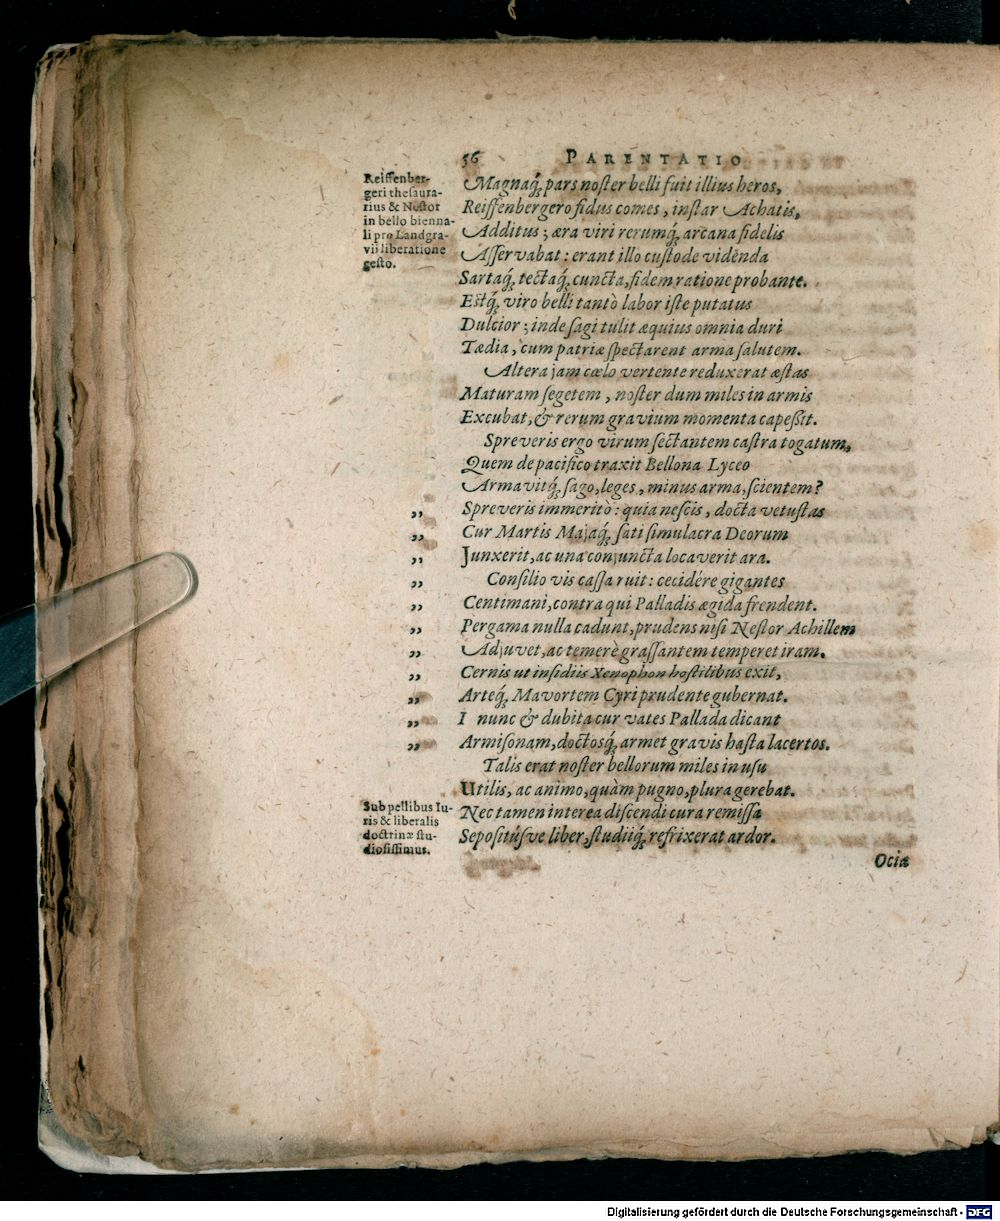 56 PARENTATIO
Reiffenber-
geri thesaura-
rius & Nestor
in bello bienna-
li pro Landgra-
vii liberatione
gesto.
Magnaq́; pars noster belli fuit illius heros,
Reiffenbergero fidus comes, instar Achatis,
Additus; æra viri rerumq́; arcana fidelis
Asservabat: erant illo custode videnda
Sartaq́; tectaq́; cuncta, fidem ratione probante.
Estq́; viro belli tantò labor iste putatus
Dulcior; inde sagi tulit æquius omnia duri
Tædia, cum patriæ spectarent arma salutem.
Altera jam cœlo vertente reduxerat æstas
Maturam segetem, noster dum miles in armis
Excubat, & rerum gravium momenta capessit.
Spreveris ergo virum sectantem castra togatum,
Quem de pacifico traxit Bellona Lyceo
Armavitq́; sago, leges, minus arma, scientem?
„ Spreveris immeritò: quia nescis, docta vetustas
„ Cur Martis Majaq́; sati simulacra Deorum
„ Junxerit, ac una conjuncta locaverit ara.
„ Consilio vis cassa ruit: cecidére gigantes
„ Centimani, contra qui Palladis ægida frendent.
„ Pergama nulla cadunt, prudens nisi Nestor Achillem
„ Adjuvet, ac temerè grassantem temperet iram.
„ Cernis ut insidiis Xenophon hostilibus exit,
„ Arteq́; Mavortem Cyri prudente gubernat.
„ I nunc & dubita cur vates Pallada dicant
„ Armisonam, doctosq́; armet gravis hasta lacertos.
Talis erat noster bellorum miles in usu
Utilis, ac animo, quàm pugno, plura gerebat.
Sub pellibus Iu-
ris & liberalis
doctrinæ stu-
diosissimus.
Nec tamen interea discendi cura remissa
Sepositúsve liber, studiiq́; refrixerat ardor.
Ocia
Digitalisierung gefördert durch die Deutsche Forschungsgemeinschaft - DFG